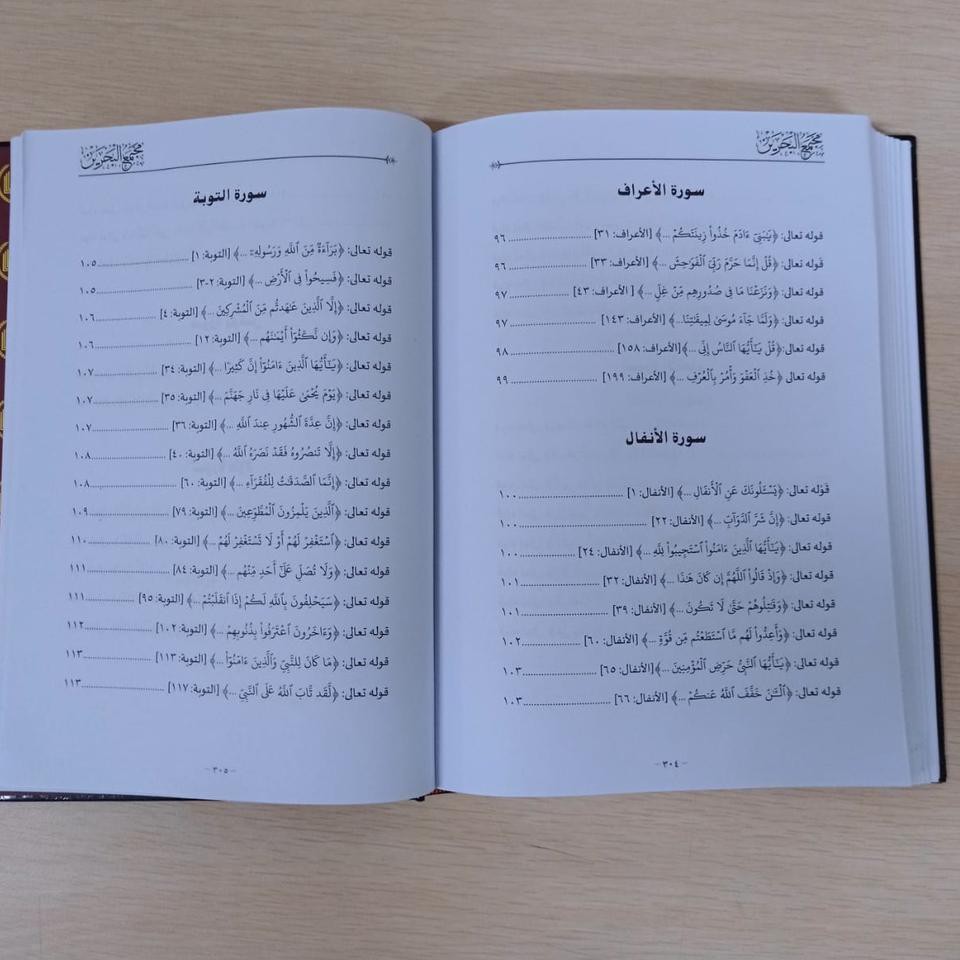 مجمع البحرين
سورة الأعراف
قوله تعالى: ﴿يَٰبَنِيٓ ءَادَمَ خُذُواْ زِينَتَكُمۡ ...﴾ [الأعراف: ٣١] ........ ٩٦
قوله تعالى: ﴿قُلۡ إِنَّمَا حَرَّمَ رَبِّيَ ٱلۡفَوَٰحِشَ ...﴾ [الأعراف: ٣٣] ........ ٩٦
قوله تعالى: ﴿وَنَزَعۡنَا مَا فِي صُدُورِهِم مِّنۡ غِلّٖ ...﴾ [الأعراف: ٤٣] ........ ٩٧
قوله تعالى: ﴿وَلَمَّا جَآءَ مُوسَىٰ لِمِيقَٰتِنَا...﴾ [الأعراف: ١٤٣] ........ ٩٧
قوله تعالى: ﴿قُلۡ يَٰٓأَيُّهَا ٱلنَّاسُ إِنِّي ...﴾[الأعراف: ١٥٨] ........ ٩٨
قوله تعالى ﴿خُذِ ٱلۡعَفۡوَ وَأۡمُرۡ بِٱلۡعُرۡفِ ...﴾ [الأعراف: ١٩٩] ........ ٩٩
سورة الأنفال
قوله تعالى: ﴿يَسۡـَٔلُونَكَ عَنِ ٱلۡأَنفَالِ ...﴾ [الأنفال: ١] ........ ١٠٠
قوله تعالى: ﴿إِنَّ شَرَّ ٱلدَّوَآبِّ ...﴾ [الأنفال: ٢٢] ........ ١٠٠
قوله تعالى: ﴿يَٰٓأَيُّهَا ٱلَّذِينَ ءَامَنُواْ ٱسۡتَجِيبُواْ لِلَّهِ ...﴾ [الأنفال: ٢٤] ........ ١٠٠
قوله تعالى: ﴿وَإِذۡ قَالُواْ ٱللَّهُمَّ إِن كَانَ هَٰذَا ...﴾ [الأنفال: ٣٢] ........ ١٠١
قوله تعالى: ﴿وَقَٰتِلُوهُمۡ حَتَّىٰ لَا تَكُونَ ...﴾ [الأنفال: ٣٩] ........ ١٠١
قوله تعالى: ﴿وَأَعِدُّواْ لَهُم مَّا ٱسۡتَطَعۡتُم مِّن قُوَّةٖ ...﴾ [الأنفال: ٦٠] ........ ١٠٢
قوله تعالى: ﴿يَٰٓأَيُّهَا ٱلنَّبِيُّ حَرِّضِ ٱلۡمُؤۡمِنِينَ ...﴾[الأنفال: ٦٥] ........ ١٠٣
قوله تعالى: ﴿ٱلۡـَٰٔنَ خَفَّفَ ٱللَّهُ عَنكُمۡ ...﴾ [الأنفال: ٦٦] ........ ١٠٣
- ٣٠٤ -
مجمع البحرين
سورة التوبة
قوله تعالى: ﴿بَرَآءَةٞ مِّنَ ٱللَّهِ وَرَسُولِهِۦٓ ...﴾ [التوبة: ١] ........ ١٠٥
قوله تعالى: ﴿فَسِيحُواْ فِي ٱلۡأَرۡضِ ...﴾ [التوبة: ٢-٣] ........ ١٠٥
قوله تعالى: ﴿إِلَّا ٱلَّذِينَ عَٰهَدتُّم مِّنَ ٱلۡمُشۡرِكِينَ ...﴾ [التوبة: ٤] ........ ١٠٦
قوله تعالى: ﴿وَإِن نَّكَثُوٓاْ أَيۡمَٰنَهُم ...﴾ [التوبة: ١٢] ........ ١٠٦
قوله تعالى: ﴿يَٰٓأَيُّهَا ٱلَّذِينَ ءَامَنُوٓاْ إِنَّ كَثِيرٗا ...﴾ [التوبة: ٣٤] ........ ١٠٧
قوله تعالى: ﴿يَوۡمَ يُحۡمَىٰ عَلَيۡهَا فِي نَارِ جَهَنَّمَ ...﴾ [التوبة: ٣٥] ........ ١٠٧
قوله تعالى: ﴿إِنَّ عِدَّةَ ٱلشُّهُورِ عِندَ ٱللَّهِ ...﴾ [التوبة: ٣٦] ........ ١٠٧
قوله تعالى: ﴿إِلَّا تَنصُرُوهُ فَقَدۡ نَصَرَهُ ٱللَّهُ ...﴾ [التوبة: ٤٠] ........ ١٠٨
قوله تعالى: ﴿إِنَّمَا ٱلصَّدَقَٰتُ لِلۡفُقَرَآءِ ...﴾ [التوبة: ٦٠] ........ ١٠٨
قوله تعالى: ﴿ٱلَّذِينَ يَلۡمِزُونَ ٱلۡمُطَّوِّعِينَ ...﴾ [التوبة: ٧٩] ........ ١٠٩
قوله تعالى: ﴿ٱسۡتَغۡفِرۡ لَهُمۡ أَوۡ لَا تَسۡتَغۡفِرۡ لَهُمۡ ...﴾ [التوبة: ٨٠] ........ ١١٠
قوله تعالى: ﴿وَلَا تُصَلِّ عَلَىٰٓ أَحَدٖ مِّنۡهُم ...﴾ [التوبة: ٨٤] ........ ١١١
قوله تعالى: ﴿سَيَحۡلِفُونَ بِٱللَّهِ لَكُمۡ إِذَا ٱنقَلَبۡتُمۡ ...﴾ [التوبة: ٩٥] ........ ١١١
قوله تعالى: ﴿وَءَاخَرُونَ ٱعۡتَرَفُواْ بِذُنُوبِهِمۡ ...﴾ [التوبة: ١٠٢] ........ ١١٢
قوله تعالى: ﴿مَا كَانَ لِلنَّبِيِّ وَٱلَّذِينَ ءَامَنُوٓاْ ...﴾ [التوبة: ١١٣] ........ ١١٣
قوله تعالى: ﴿لَّقَد تَّابَ ٱللَّهُ عَلَى ٱلنَّبِيِّ ...﴾ [التوبة: ١١٧] ........ ١١٣
- ٣٠٥ -